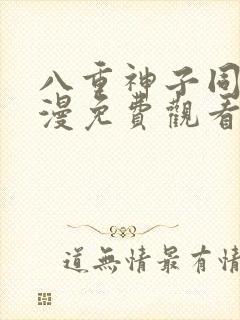 八重神子同
漫免費觀看
道無情最有情